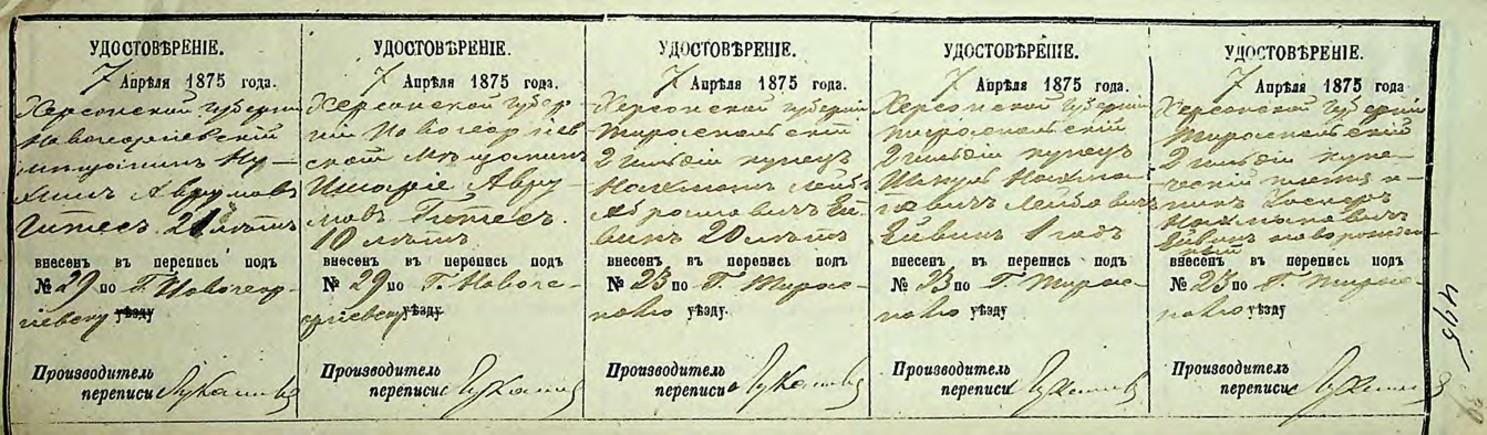 УДОСТОВѢРЕНІЕ.
7 Апрѣля 1875 года.
Херсонской губерніи
Новогеоргіевскій
мѣщанинъ Ну-
химъ Аврумовъ
Гитесъ. 21 лѣтъ
внесенъ въ перепись подъ
№ 29 по Г. Новогеор-
гіевску уѣзду
Производитель
переписи
УДОСТОВѢРЕНІЕ.
7 Апрѣля 1875 года.
Херсонской губер-
ніи Новогеоргіев-
скій Мѣщанинъ
Авру-
мовъ Гитесъ.
10 лѣтъ
внесенъ въ перепись подъ
№ 29 по Г. Новоге-
оргіевску уѣзду.
Производитель
переписи
УДОСТОВѢРЕНІЕ.
7 Апрѣля 1875 года.
Херсонской губерніи
Тираспольскій
2 гильдіи купецъ
Нахманъ Лейбъ
Абрамовичъ Ей-
винъ 20 лѣтъ
внесенъ въ перепись подъ
№ 23 по Г. Тирас-
полю уѣзду.
Производитель
переписи
УДОСТОВѢРЕНІЕ.
7 Апрѣля 1875 года.
Херсонской губерніи
Тираспольскій
2 гильдіи купецъ
Нахма-
новичъ Лейбовичъ
Ейвинъ 1 годъ
внесенъ въ перепись подъ
№ 23 по Г. Тирас-
полю уѣзду
Производитель
переписи
УДОСТОВѢРЕНІЕ.
7 Апрѣля 1875 года.
Херсонской губерніи
Тираспольскій
2 гильдіи купе-
ческій племян-
никъ
Нахмановичъ
Ейвинъ новорожден-
ный
внесенъ въ перепись подъ
№ 23 по Г. Тирас-
полю уѣзду
Производитель
переписи